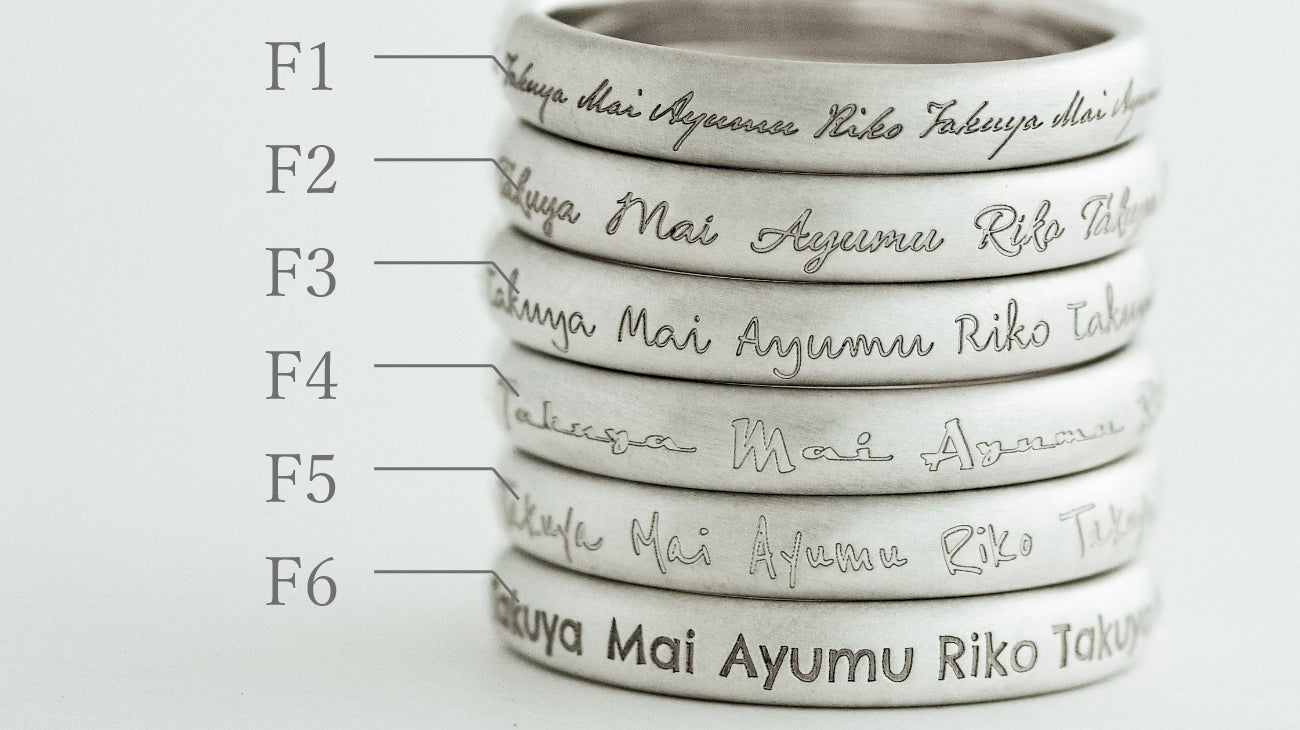 F1 Takuya Mai Ayumu Riko Takuya Mai Ayumu
F2 Takuya Mai Ayumu Riko Takuya
F3 Takuya Mai Ayumu Riko Taku
F4 Takuya Mai Ayumu
F5 Takuya Mai Ayumu Riko Taku
F6 Takuya Mai Ayumu Riko Takuya